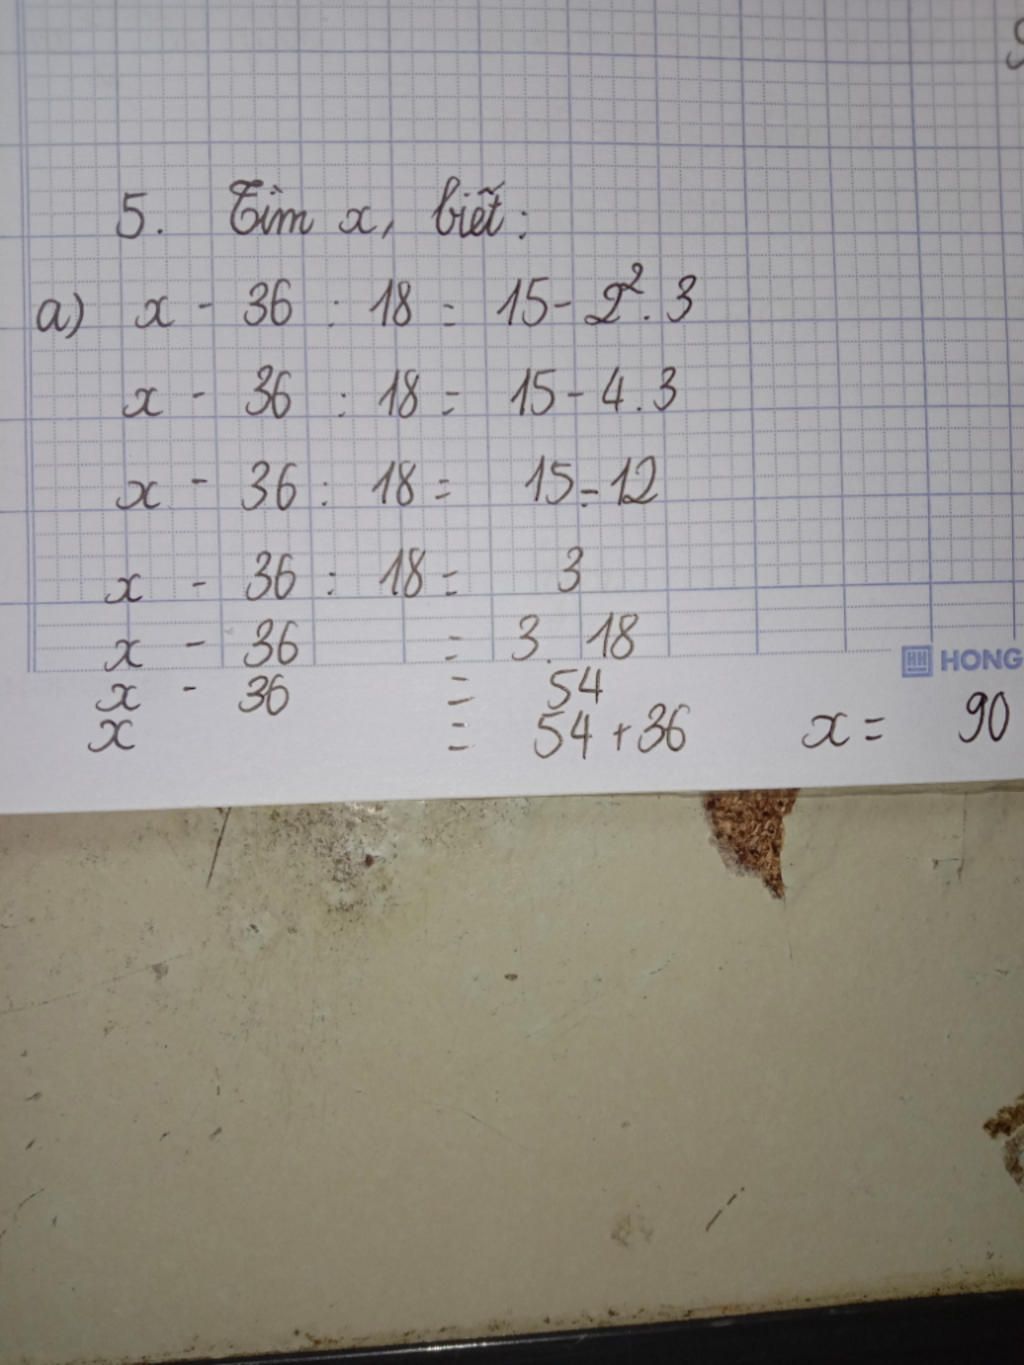 5. Tìm x, biết:
a) x - 36 : 18 = 15 - 2². 3
x - 36 : 18 = 15 - 4 . 3
x - 36 : 18 = 15 - 12
x - 36 : 18 = 3
x - 36 = 3 . 18
HONG
x - 36 = 54
x = 54 + 36 x = 90